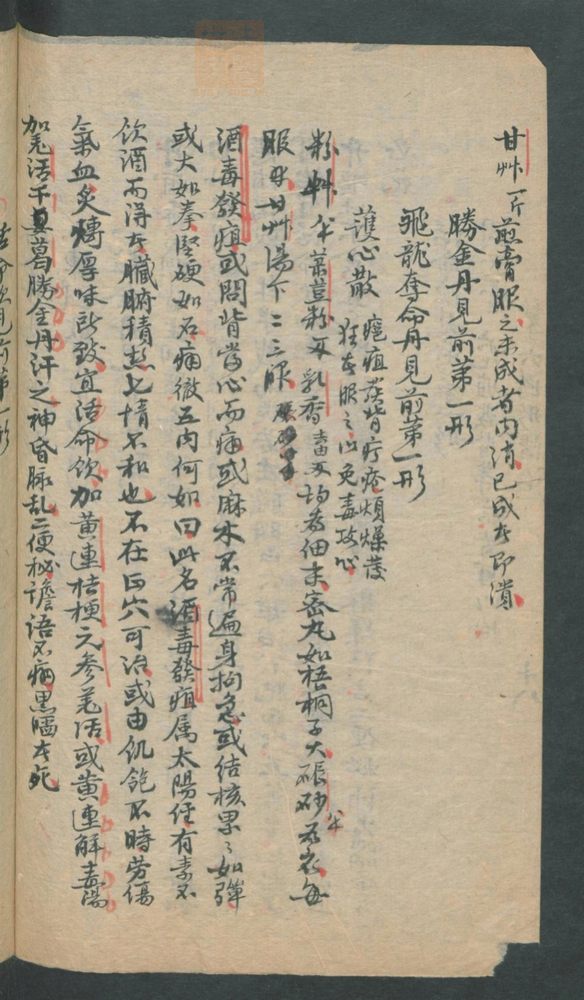 甘艸一斤煎膏服之未成者內消已成者即潰
勝金丹見前第一形
飛龍奪命丹見前第一形
護心散 疽發背疔瘡煩燥發
狂者服之以免毒攻心
粉艸 菉荳粉 乳香 為細末蜜丸如梧桐子大硃砂為衣每
服用甘艸湯下二三服
酒毒發疽或問背當心而痛或麻木不常遍身拘急或结核累々如彈
或大如拳堅硬如石痛徹五內何如曰此名酒毒發疽属太陽経有毒不
飲酒而得者臟腑積熱七情不和也不在囟穴可治或由飢飽不時劳傷
氣血炙煿厚味所致宜活命飲加黄連桔梗元参羌活或黄連解毒湯
加羌活干葛勝金丹汗之神昏脉乱二便秘譫語不痛黑陷者死